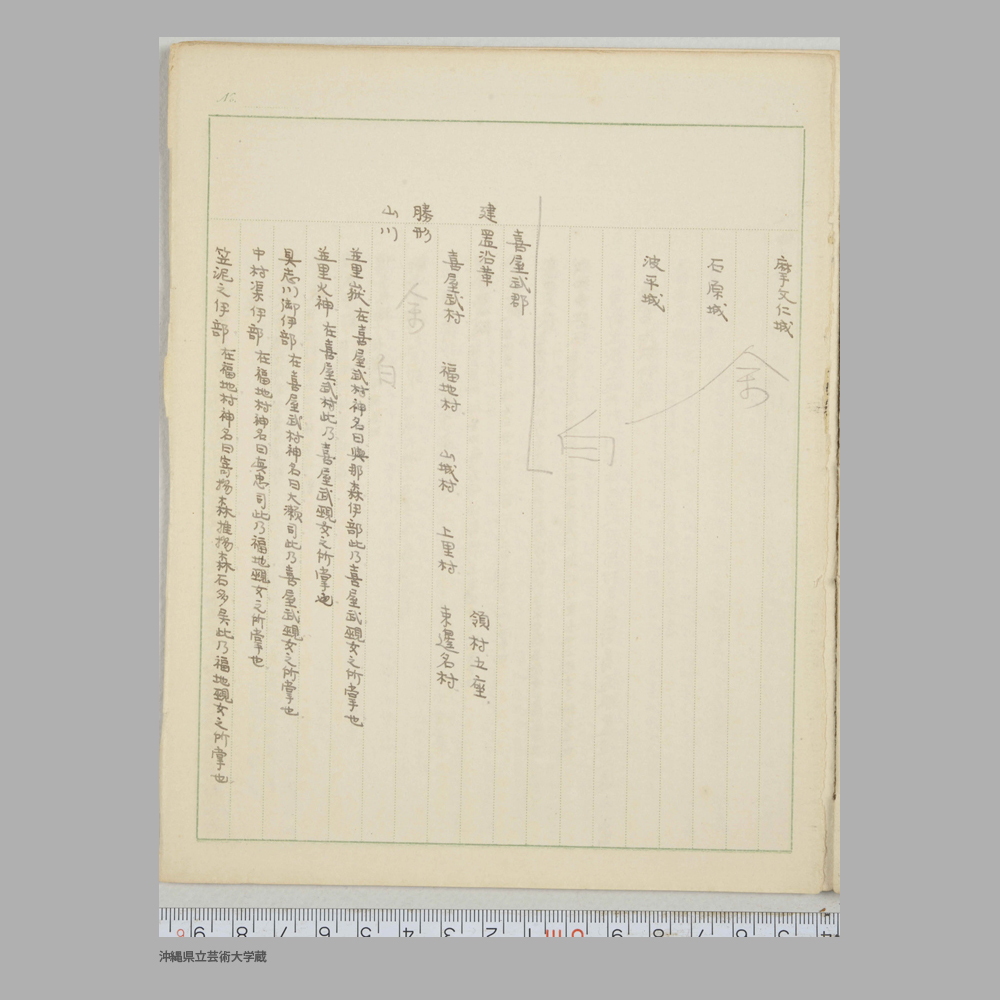 摩文仁城
石原城
波平城
余白
喜屋武郡
建置沿革 領村五座
喜屋武村 福地村 山城村 上里村 束邊名村
勝形
余白
山川
並里嶽 在喜屋武村神名曰與那森伊部此乃喜屋武覡女之所掌也
並里火神 在喜屋武村此乃喜屋武覡女之所掌也
具志川御伊部 在喜屋武村神名曰大瀬司此乃喜屋武覡女之所掌也
中村渠伊部 在福地村神名曰真惠司此乃福地覡女之所掌也
笠泥之伊部 在福地村神名曰寄揚森推揚森石多矣此乃福地覡女之所掌也
No.
9 8 7 6 5 4 3 2 1 9 8 7 6 5
沖縄県立芸術大学蔵